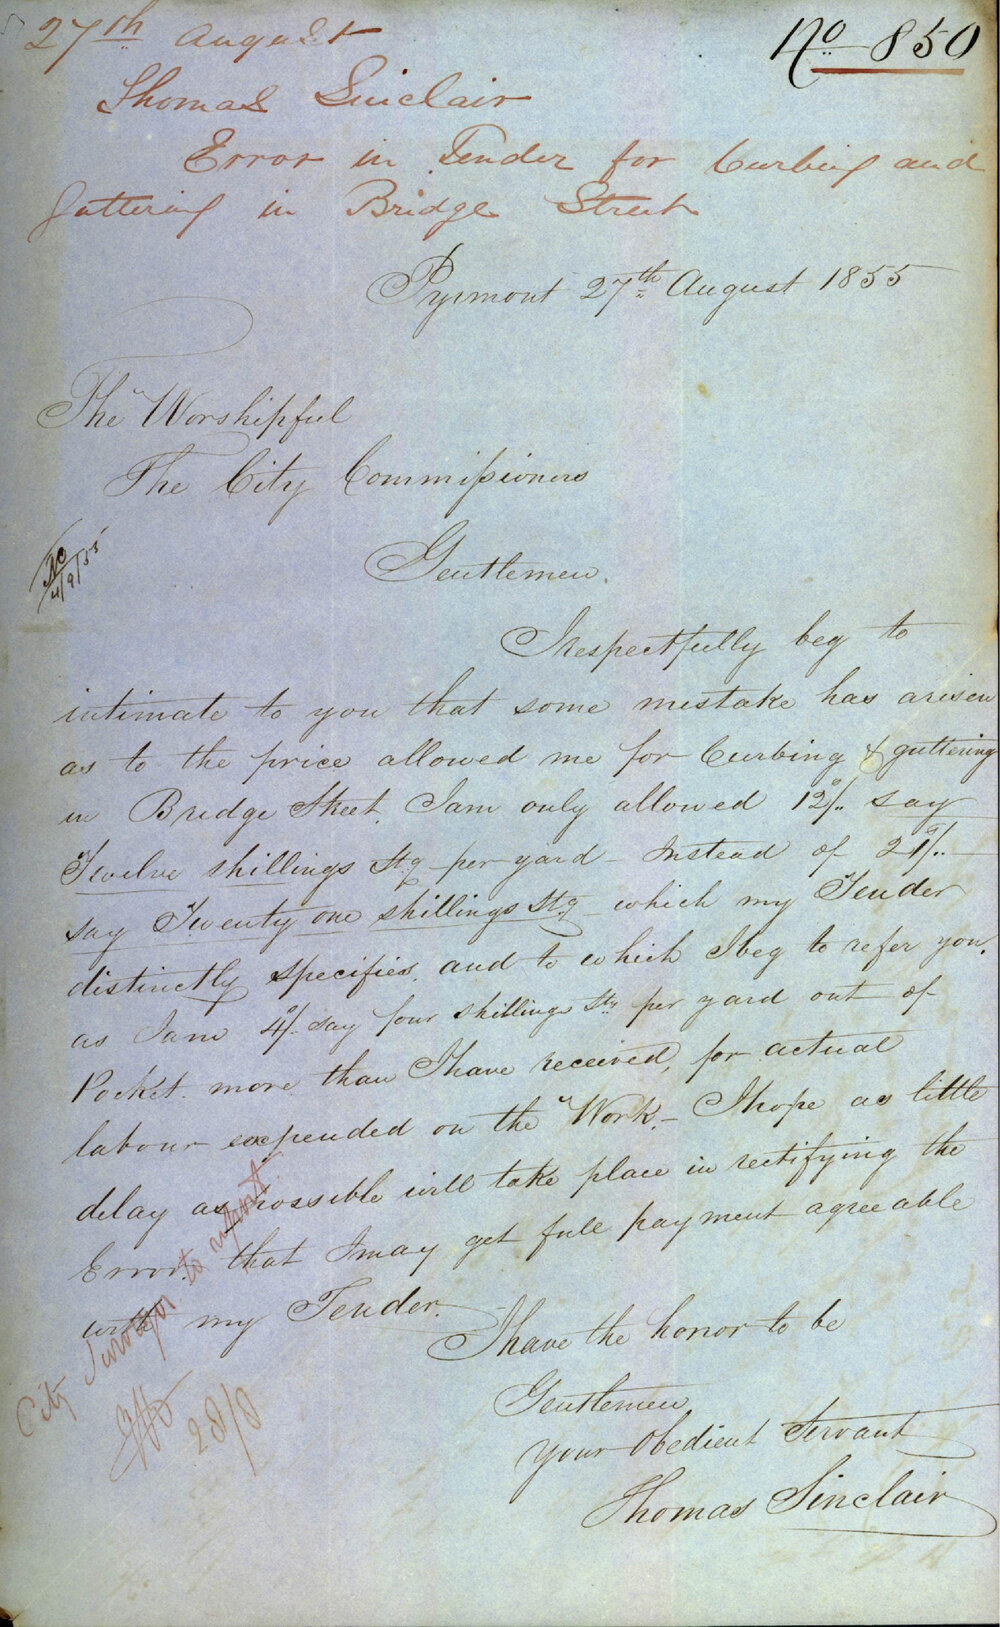 27th August
No 850
Thomas Sinclair
Error in Tender for Curbing and
Guttering in Bridge Street
Pyrmont 27th August 1855
The Worshipful
The City Commissioners
4/9/55
Gentlemen.
I respectfully beg to
intimate to you that some mistake has arisen
as to the price allowed me for Curbing & guttering
in Bridge Street. I am only allowed 12/.. say
Twelve shillings Stg per yard - Instead of 21/..
say Twenty one shillings Stg which my Tender
distinctly specifies, and to which I beg to refer you.
as I am 4/- say four shillings Stg per yard out of
Pocket. more than I have received, for actual
labour expended on the Work. - I hope as little
delay as possible will take place in rectifying the
Error. that I may get full payment agreeable
with my Tender.
I have the honor to be
Gentlemen
your Obedient Servant
Thomas Sinclair
City Surveyor to report
28/8